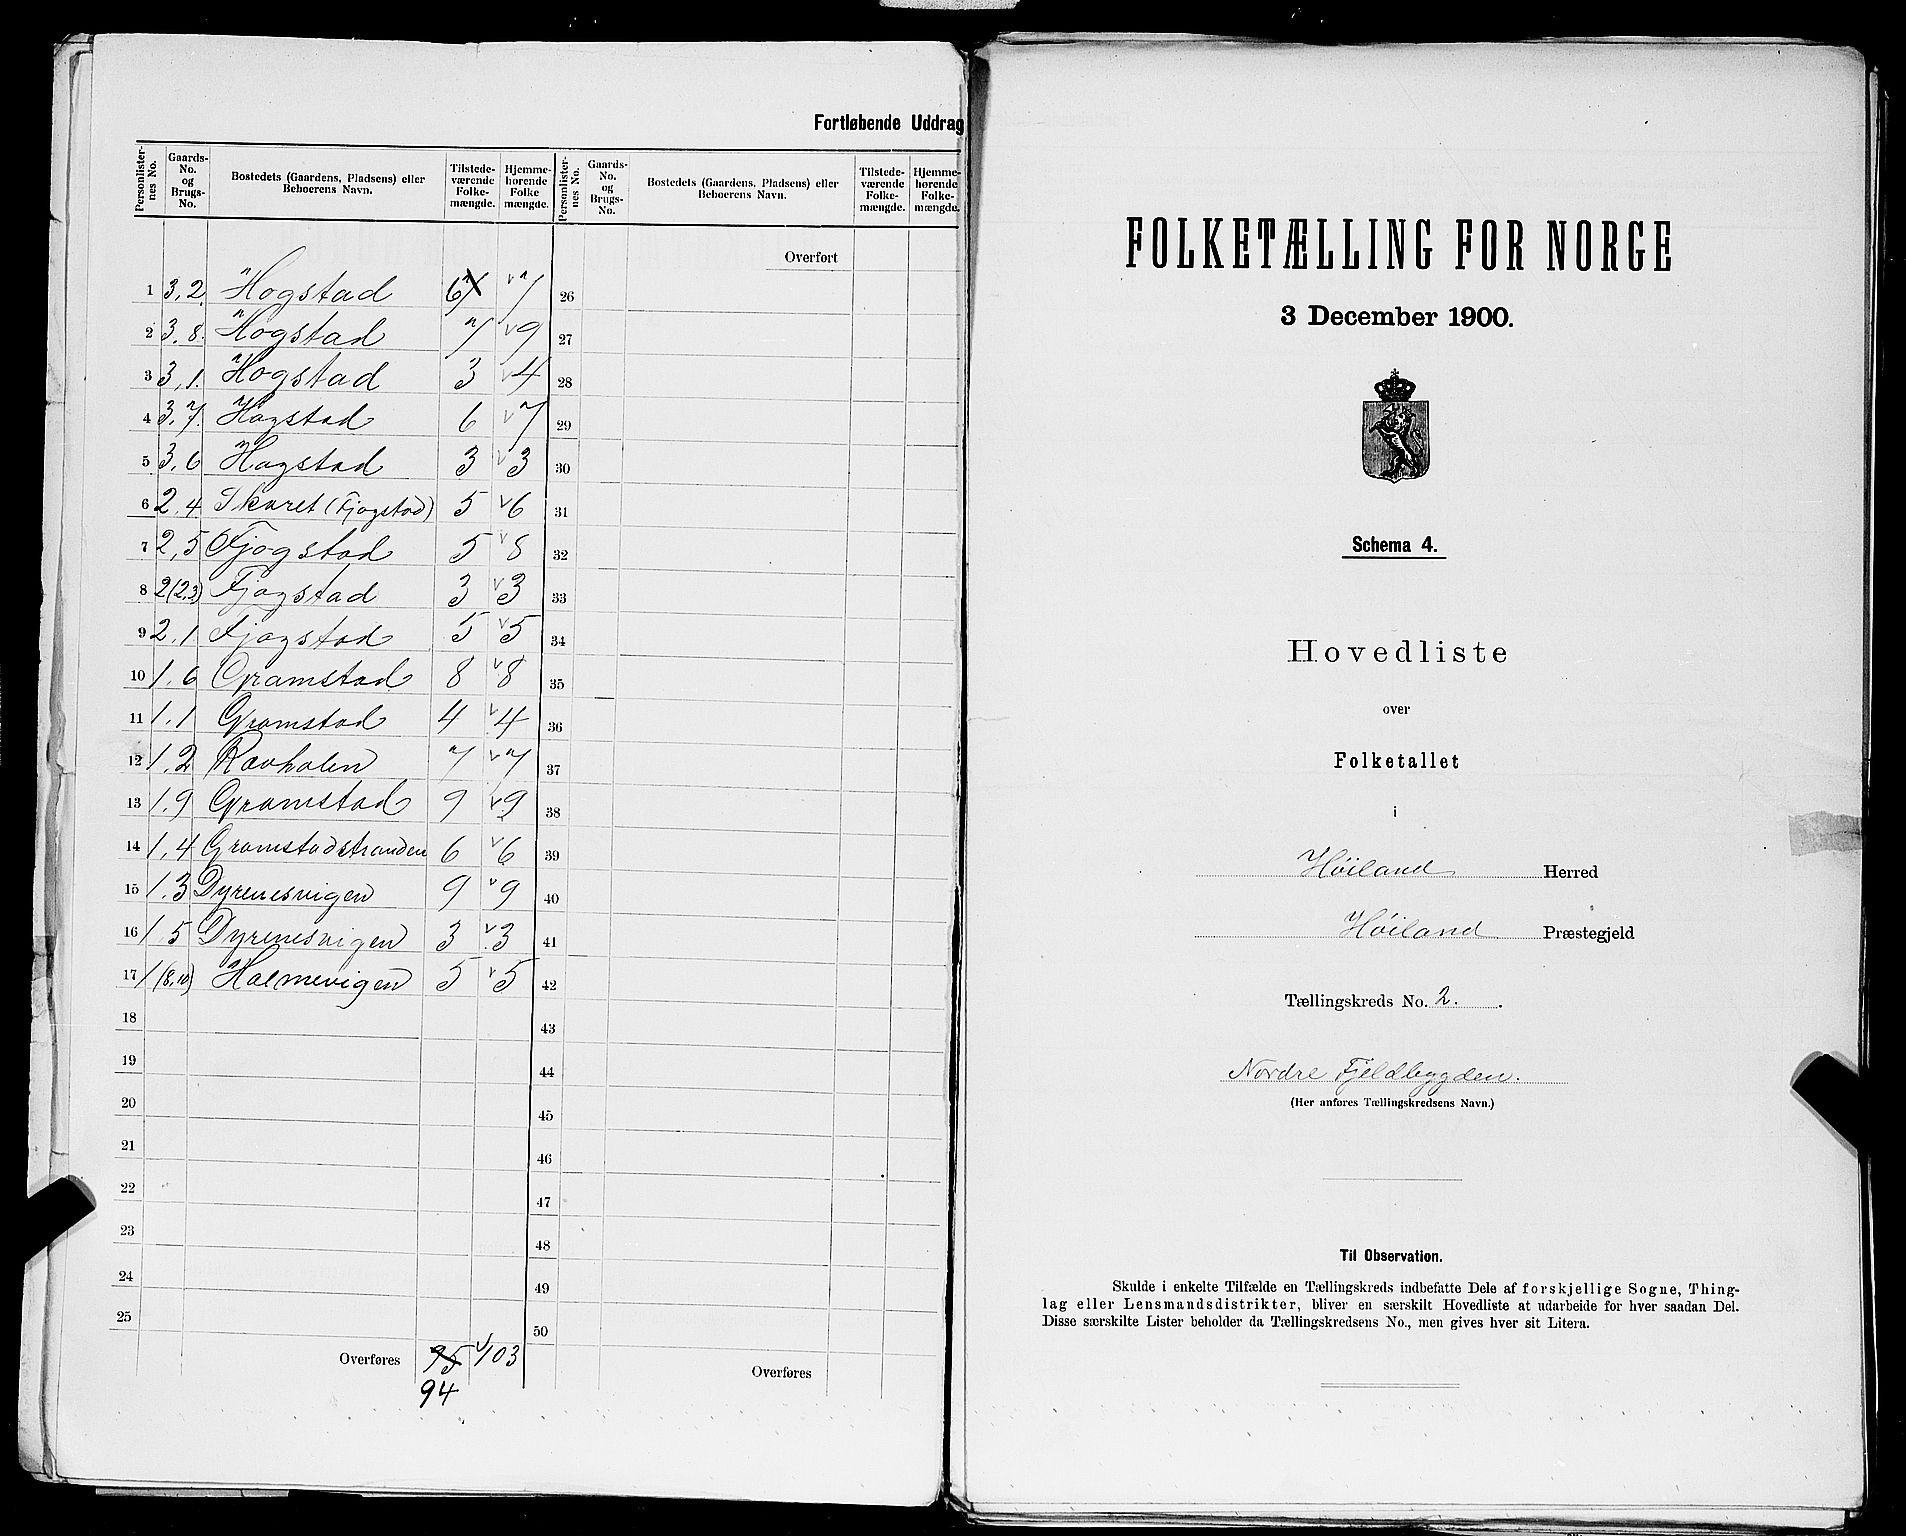 Fortløbende Uddrag
Personlister-nes No. Gaards-No. og Brugs-No. Bostedets (Gaardens, Pladsens) eller Beboerens Navn. Tilstede-værende Folke-mængde. Hjemme-hørende Folke mængde. Personlister-nes No. Gaards-No. og Brugs-No. Bostedets (Gaardens, Pladsens) eller Beboerens Navn. Tilstede-værende Folke-mængde. Hjemme-hørende Folke-mængde.
Overført
1 3,2 Hogstad 6 7 26
2 3,8. Hogstad 7 9 27
3 3,1. Hogstad 3 4 28
4 3,7. Hogstad 6 7 29
5 3,6 Hogstad 3 3 30
6 2,4 Skaret (Fjogstad) 5 6 31
7 2,5 Fjogstad 5 8 32
8 2(2,3) Fjogstad 3 3 33
9 2,1 Fjogstad 5 5 34
10 1,6 Gramstad 8 8 35
11 1,1 Gramstad 4 4 36
12 1,2 Ravholen 7 7 37
13 1,9 Gramstad 9 9 38
14 1,4 Gramstadstranden 6 6 39
15 1,3 Dyrenesvigen 9 9 40
16 1,5 Dyrenesvigen 3 3 41
17 1(8,10) Holmevigen 5 5 42
18 43
19 44
20 45
21 46
22 47
23 48
24 49
25 50
Overføres 95 103 Overføres
94
FOLKETÆLLING FOR NORGE
3 December 1900.
Schema 4.
Hovedliste
over
Folketallet
i
Høiland Herred
Høiland Præstegjeld
Tællingskreds No. 2.
Nordre Fjeldbygden.
(Her anføres Tællingskredsens Navn.)
Til Observation.
Skulde i enkelte Tilfælde en Tællingskreds indbefatte Dele af forskjellige Sogne, Thing-
lag eller Lensmandsdistrikter, bliver en særskilt Hovedliste at udarbeide for hver saadan Del.
Disse særskilte Lister beholder da Tællingskredsens No., men gives hver sit Litera.